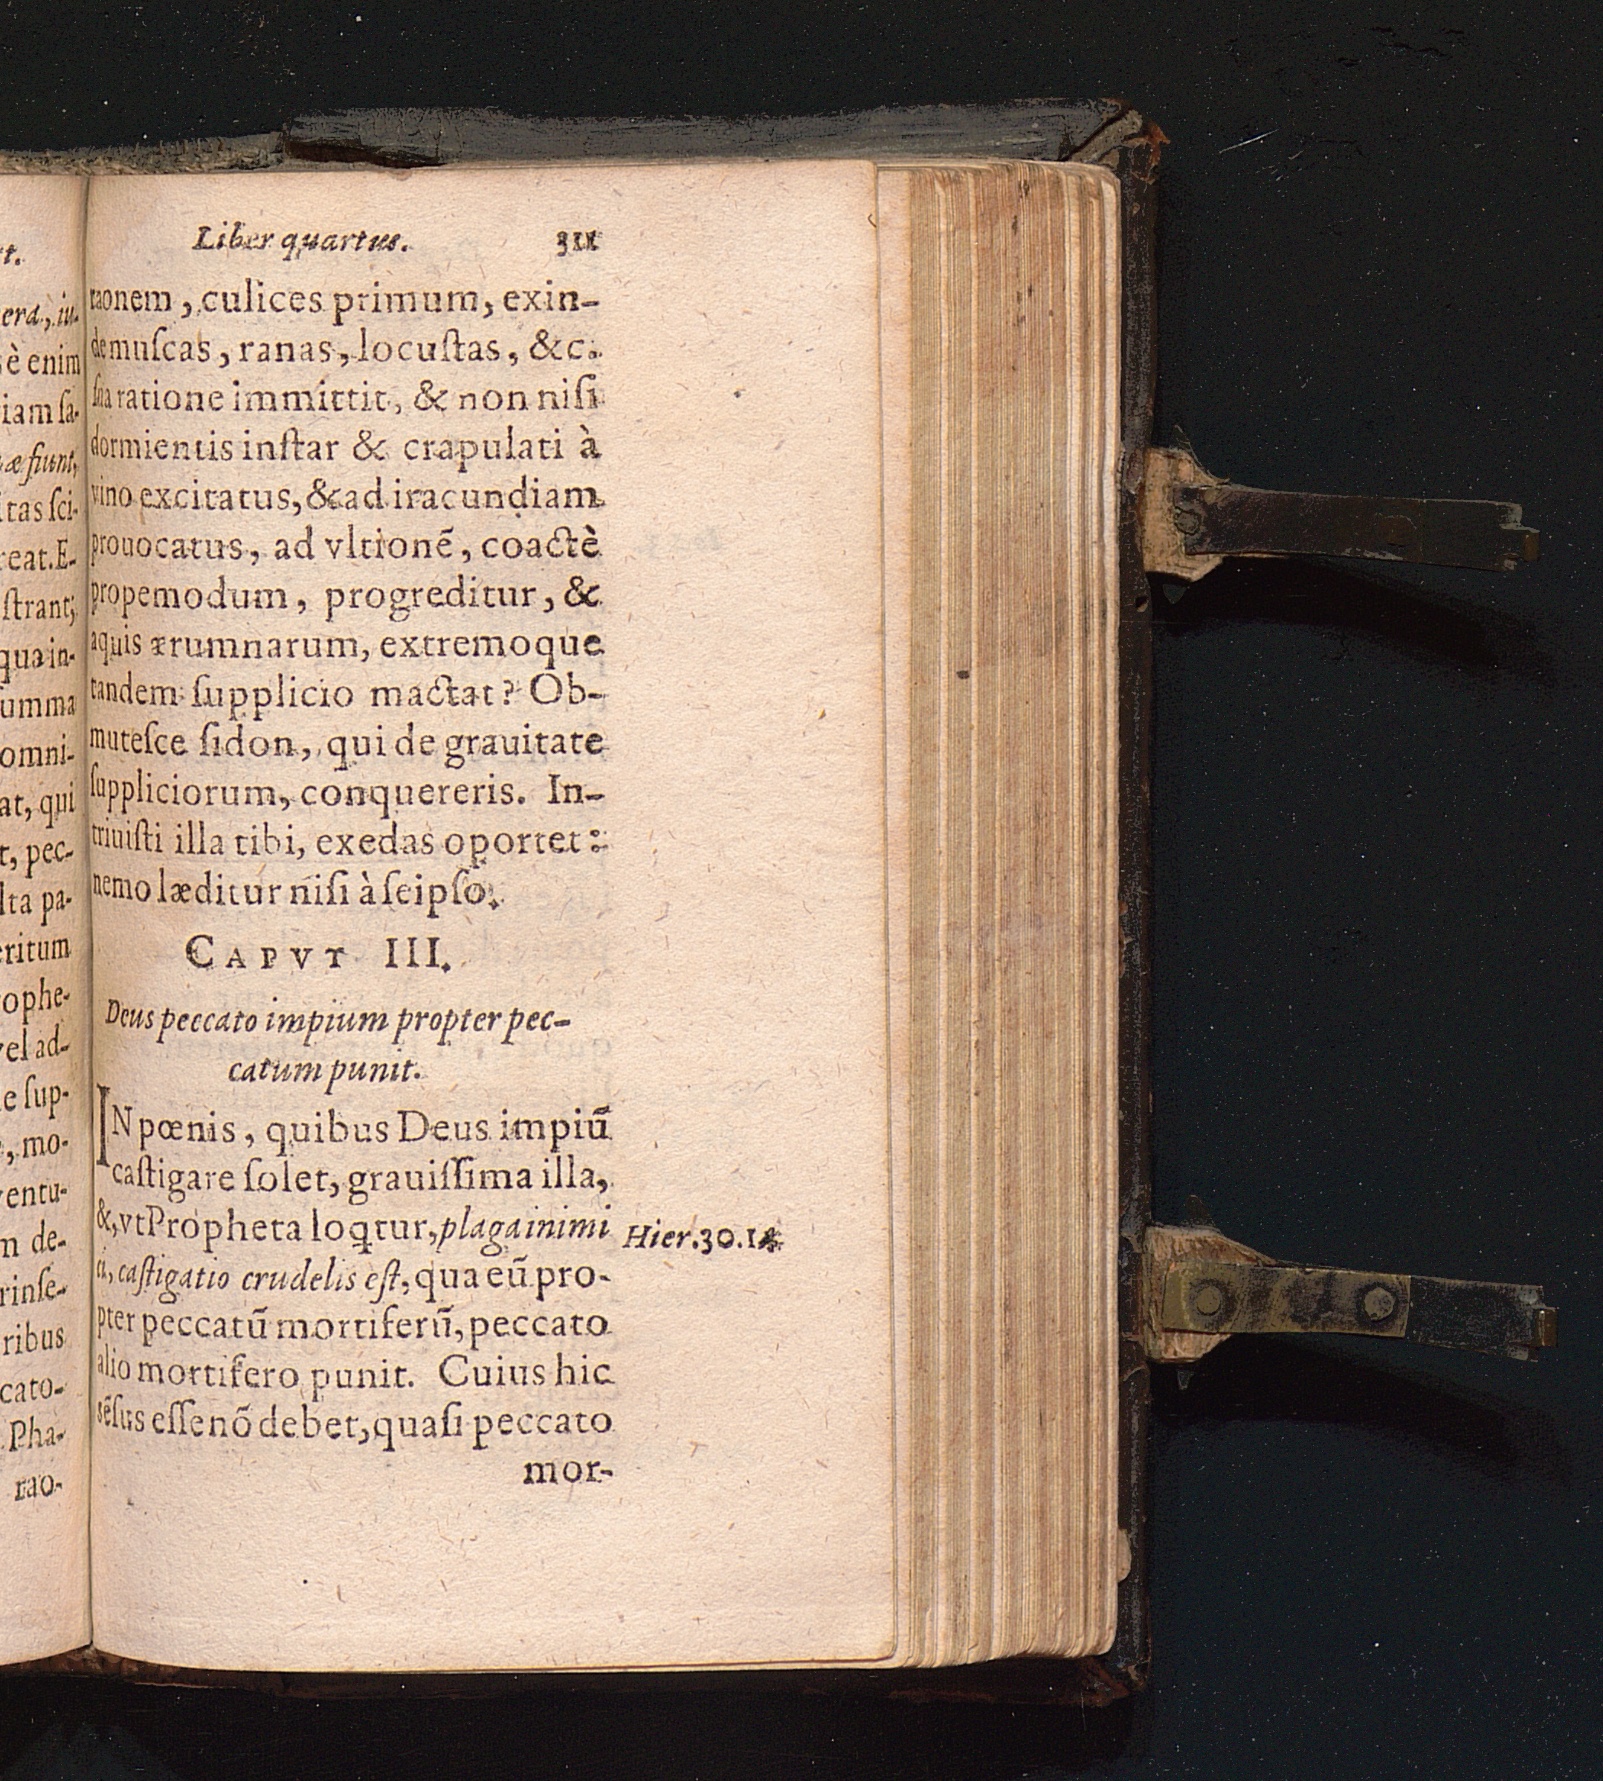 t.
erà, iu-
è enim
iam ſa-
æ fiunt,
itas ſci-
reat. E-
ſtrant;
qua in-
umma
omni-
at, qui
t, pec-
lta pa-
eritum
ophe-
vel ad-
e ſup-
, mo-
ventu-
m de-
rinſe-
ribus
cato-
Pha-
rao-
Liber quartus. 311
raonem, culices primum, exin-
de muſcas, ranas, locuſtas, &c.
ſua ratione immittit, & non niſi
dormientis inſtar & crapulati à
vino excitatus, & ad iracundiam
prouocatus, ad vltionē, coactè
propemodum, progreditur, &
aquis ærumnarum, extremoque
tandem ſupplicio mactat? Ob-
muteſce ſidon, qui de grauitate
ſuppliciorum, conquereris. In-
triuiſti illa tibi, exedas oportet:
nemo læditur niſi à ſeipſo.
CAPVT III.
Deus peccato impium propter pec-
catum punit.
IN pœnis, quibus Deus impiū
caſtigare ſolet, grauiſſima illa,
&, vt Propheta loqtur, plaga inimi
ci, caſtigatio crudelis eſt, qua eū pro-
pter peccatū mortiferū, peccato
alio mortifero punit. Cuius hic
sēſus eſſe nō debet, quaſi peccato
mor-
Hier. 30. 14